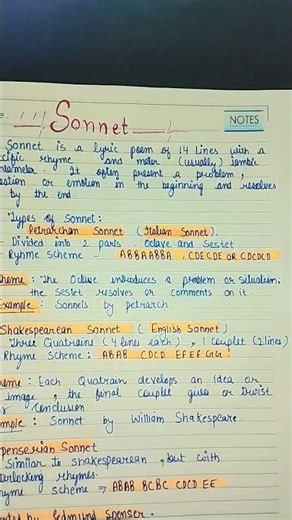 Sonnet
NOTES
Sonnet is a lyric poem of 14 lines with a
rhyme and meter (usually) iambic
It often present a problem,
or emotion in the beginning and resolves
by the end.
Types of Sonnet:
Petrarchan Sonnet (Italian Sonnet).
Divided into 2 parts. Octave and Sestet
Ryhme scheme - ABBAABBA, CDECDE OR CDCDCD
: The Octave introduces a problem or situation.
the sestet resolves or comments on it.
Example: Sonnets by Petrarch
Shakespearean Sonnet (English Sonnet)
Three Quatrains (4 lines each), 1 Couplet (2 lines)
Rhyme Scheme: ABAB CDCD EFEF GG
: Each Quatrain develops an idea or
image, the final couplet gives or twist
Conclusion
: Sonnet by William Shakespeare
Sonnet
Similar to Shakespearean, but with
rhymes.
scheme → ABAB BCBC CDCD EE
by Edmund Spenser.